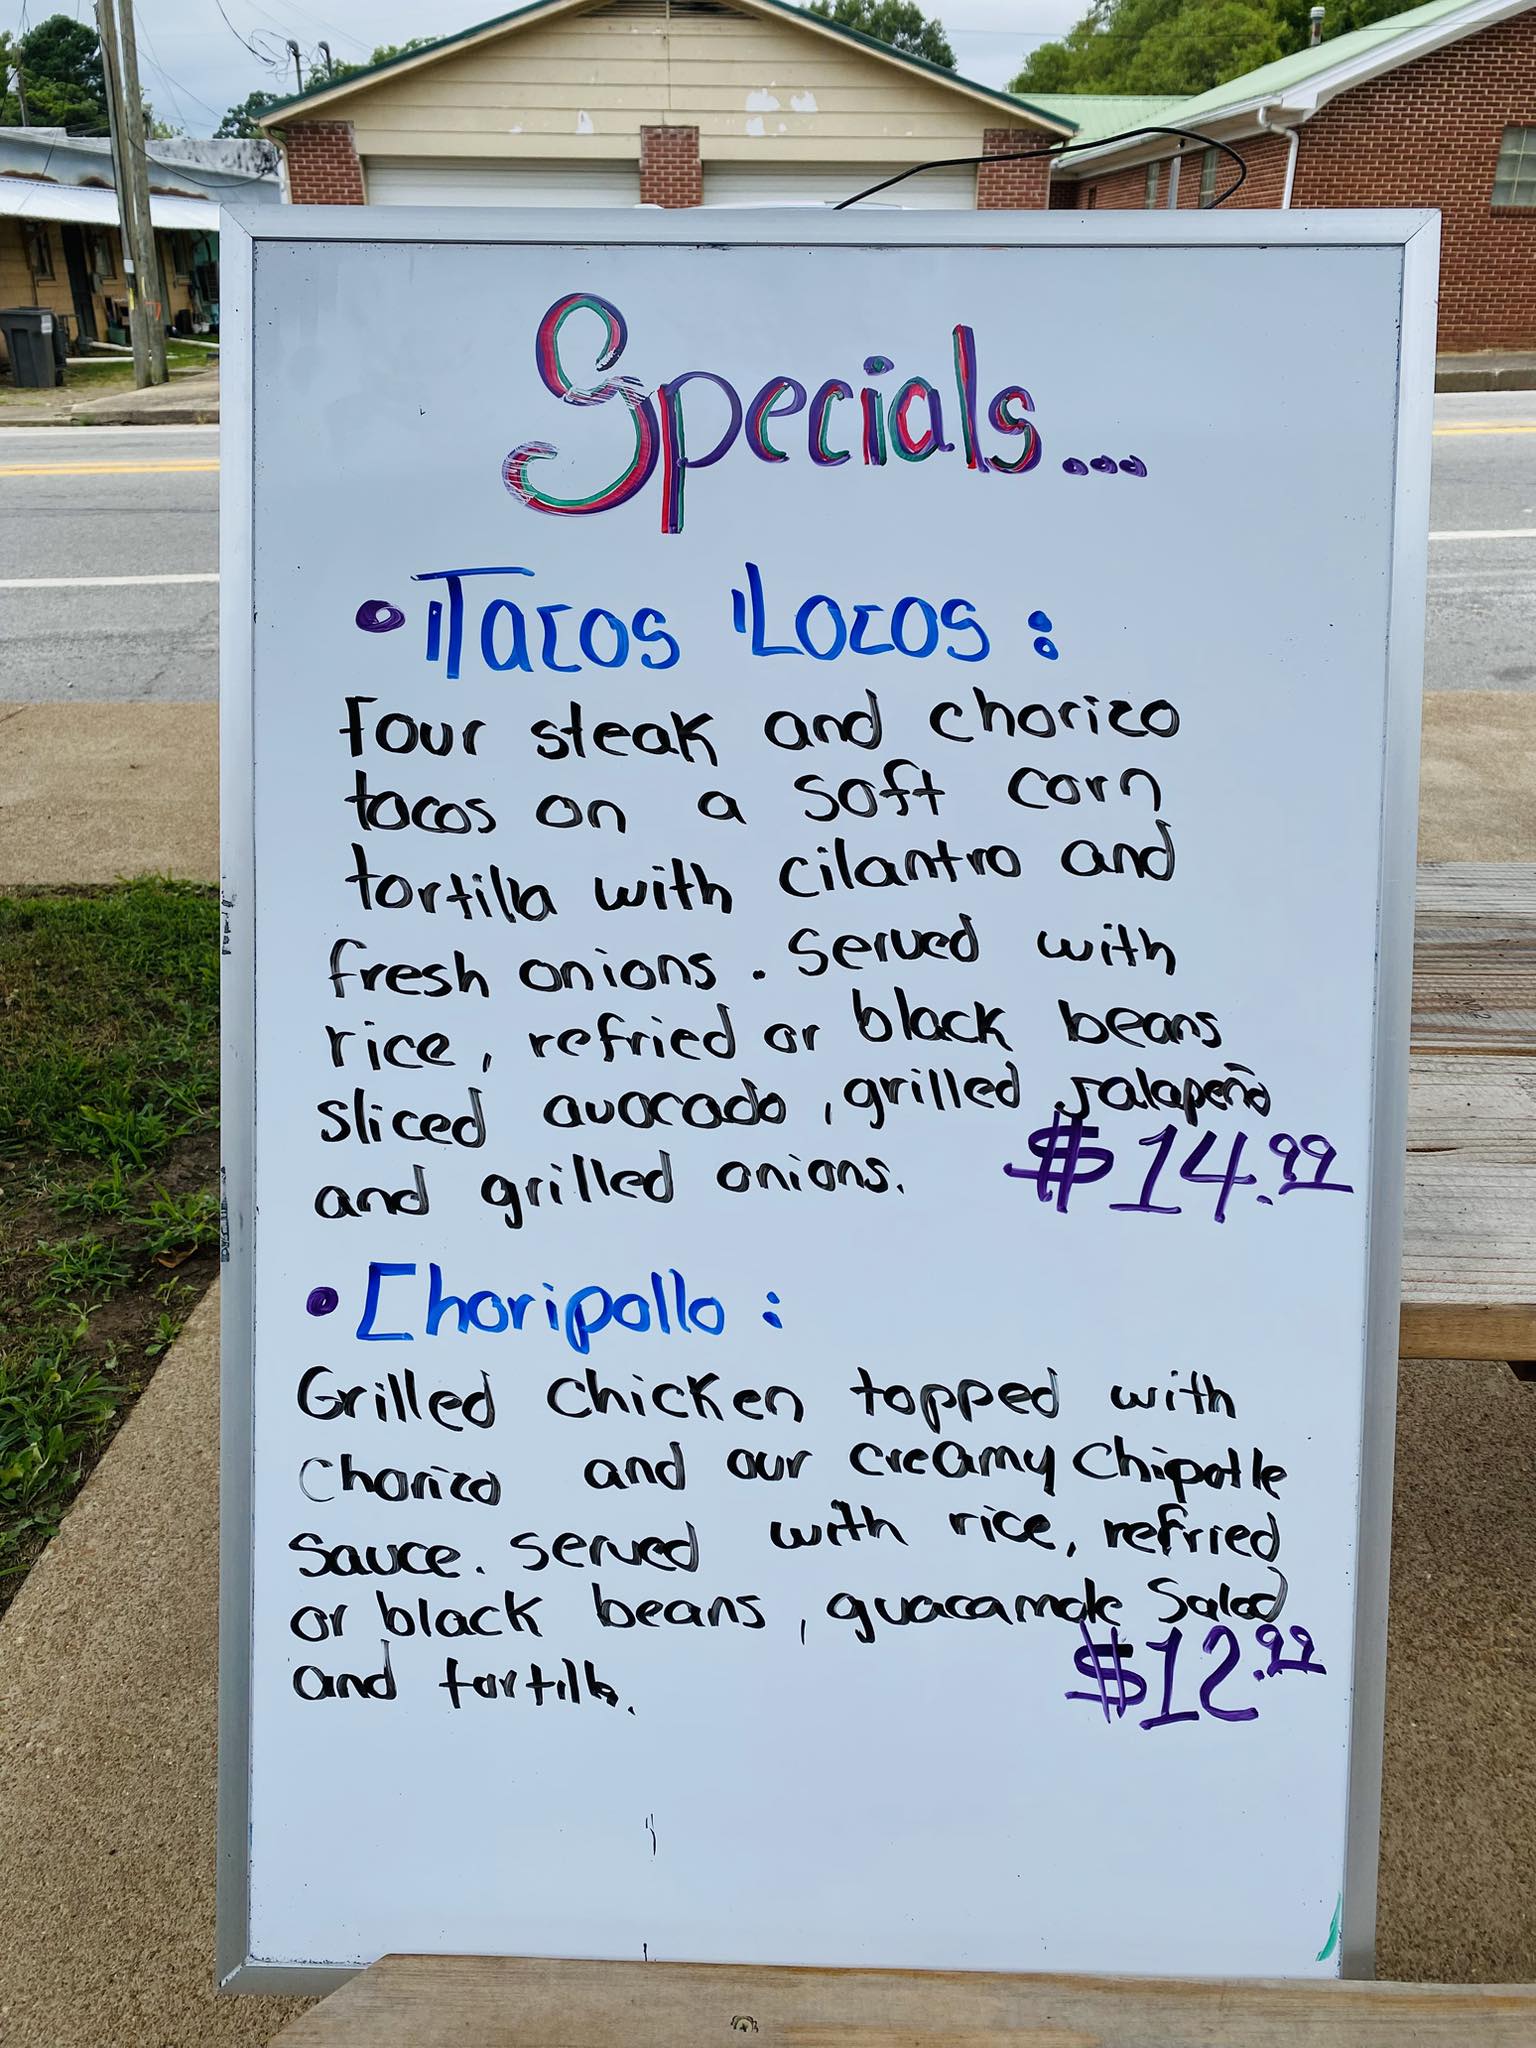 Specials...
• Tacos Locos :
Four steak and chorizo
tacos on a soft corn
tortilla with cilantro and
fresh onions. Served with
rice, refried or black beans
sliced avocado, grilled Jalapeño
and grilled onions. $14.99
• Choripollo :
Grilled Chicken topped with
Chorizo and our creamy Chipotle
Sauce. Served with rice, refried
or black beans, guacamole Salad
and tortilla. $12.99